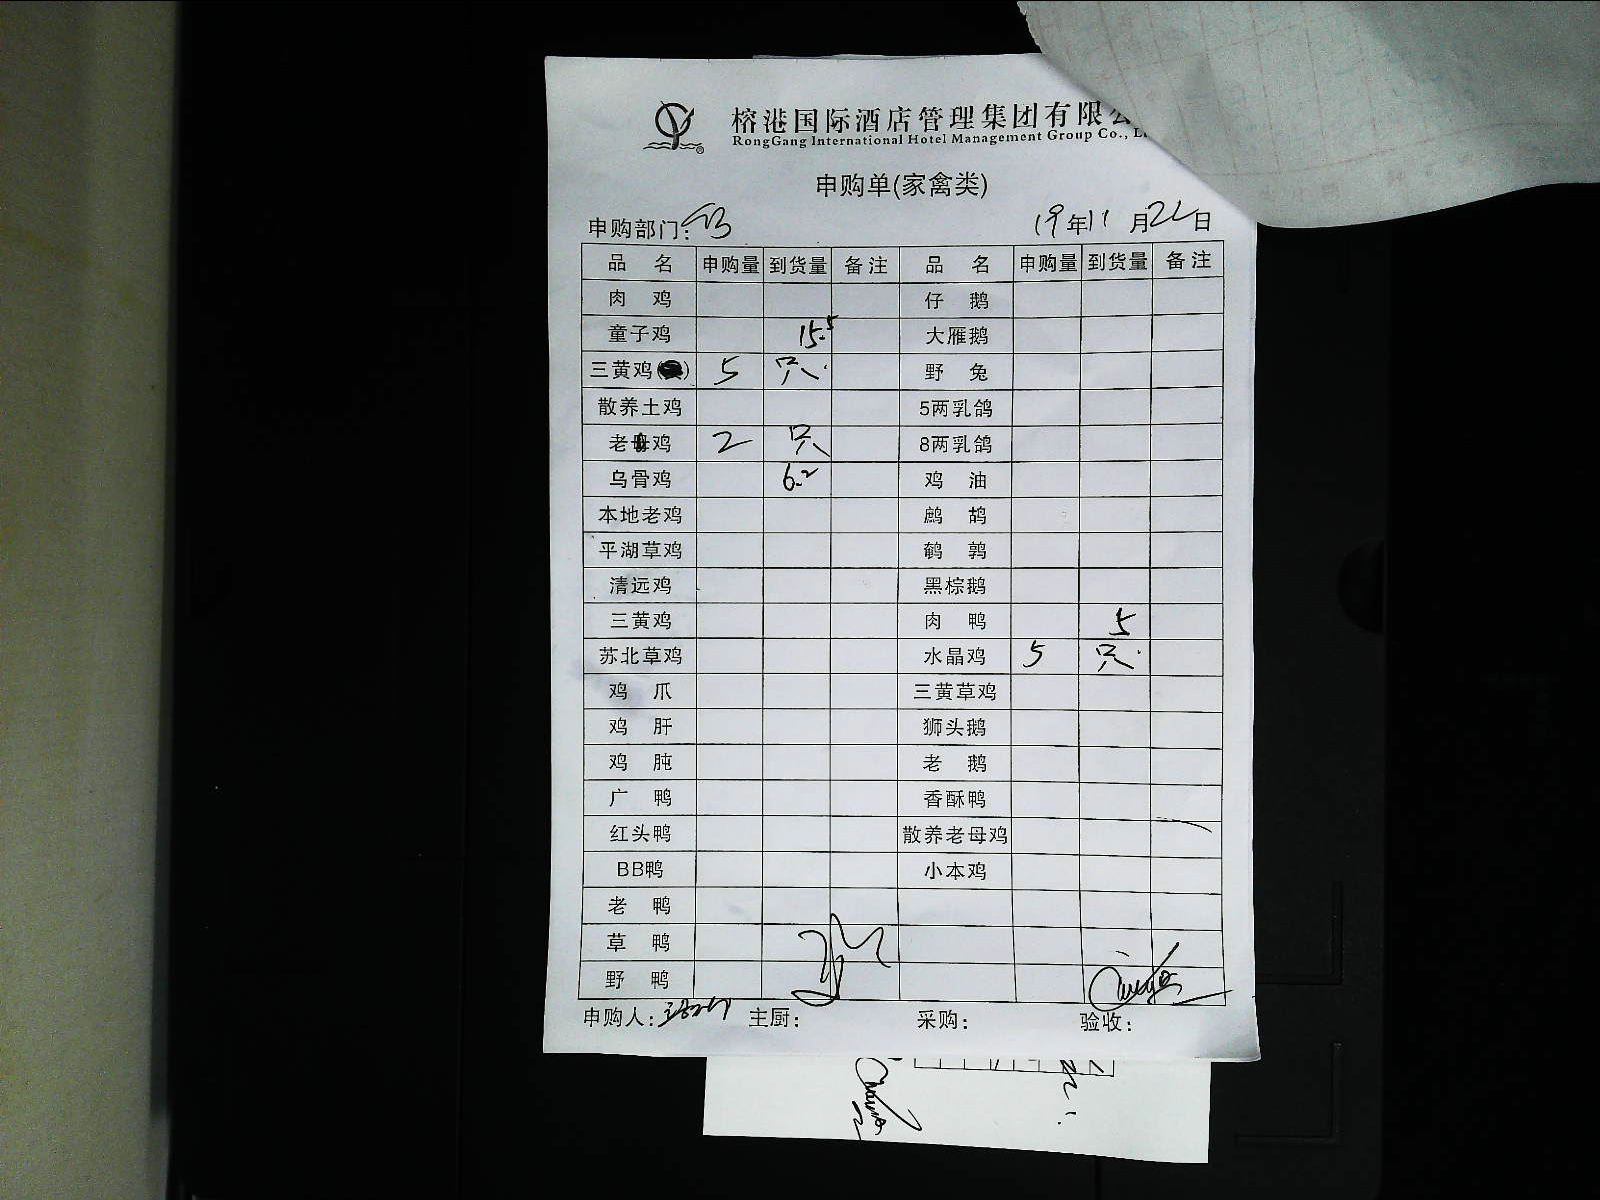 榕港国际酒店管理集团有限公
RongGang International Hotel Management Group Co., L
申购单(家禽类)
申购部门: 19年11月22日
品名 申购量 到货量 备注 品名 申购量 到货量 备注
肉鸡 仔鹅
童子鸡 15.5 大雁鹅
三黄鸡( ) 5 只 野兔
散养土鸡 5两乳鸽
老母鸡 2 只 8两乳鸽
乌骨鸡 6.2 鸡油
本地老鸡 鹧鸪
平湖草鸡 鹌鹑
清远鸡 黑棕鹅
三黄鸡 肉鸭 5
苏北草鸡 水晶鸡 5 只
鸡爪 三黄草鸡
鸡肝 狮头鹅
鸡肫 老鹅
广鸭 香酥鸭
红头鸭 散养老母鸡
BB鸭 小本鸡
老鸭
草鸭
野鸭
申购人: 主厨: 采购: 验收: